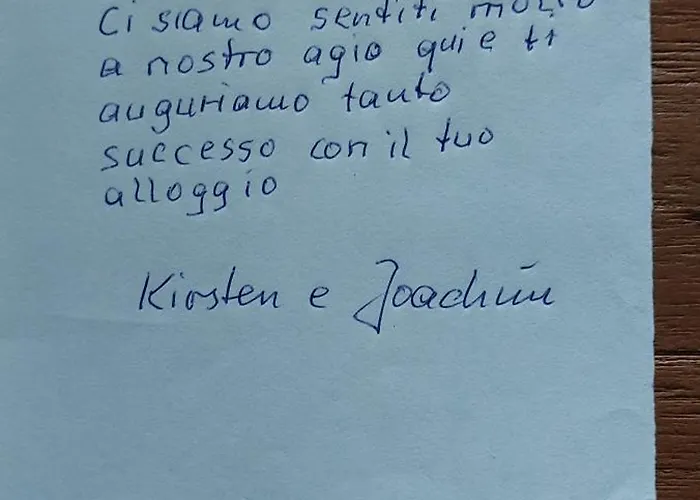 Ci siamo sentiti molto
a nostro agio qui e ti
auguriamo tanto
successo con il tuo
alloggio
Kirsten e Joachim